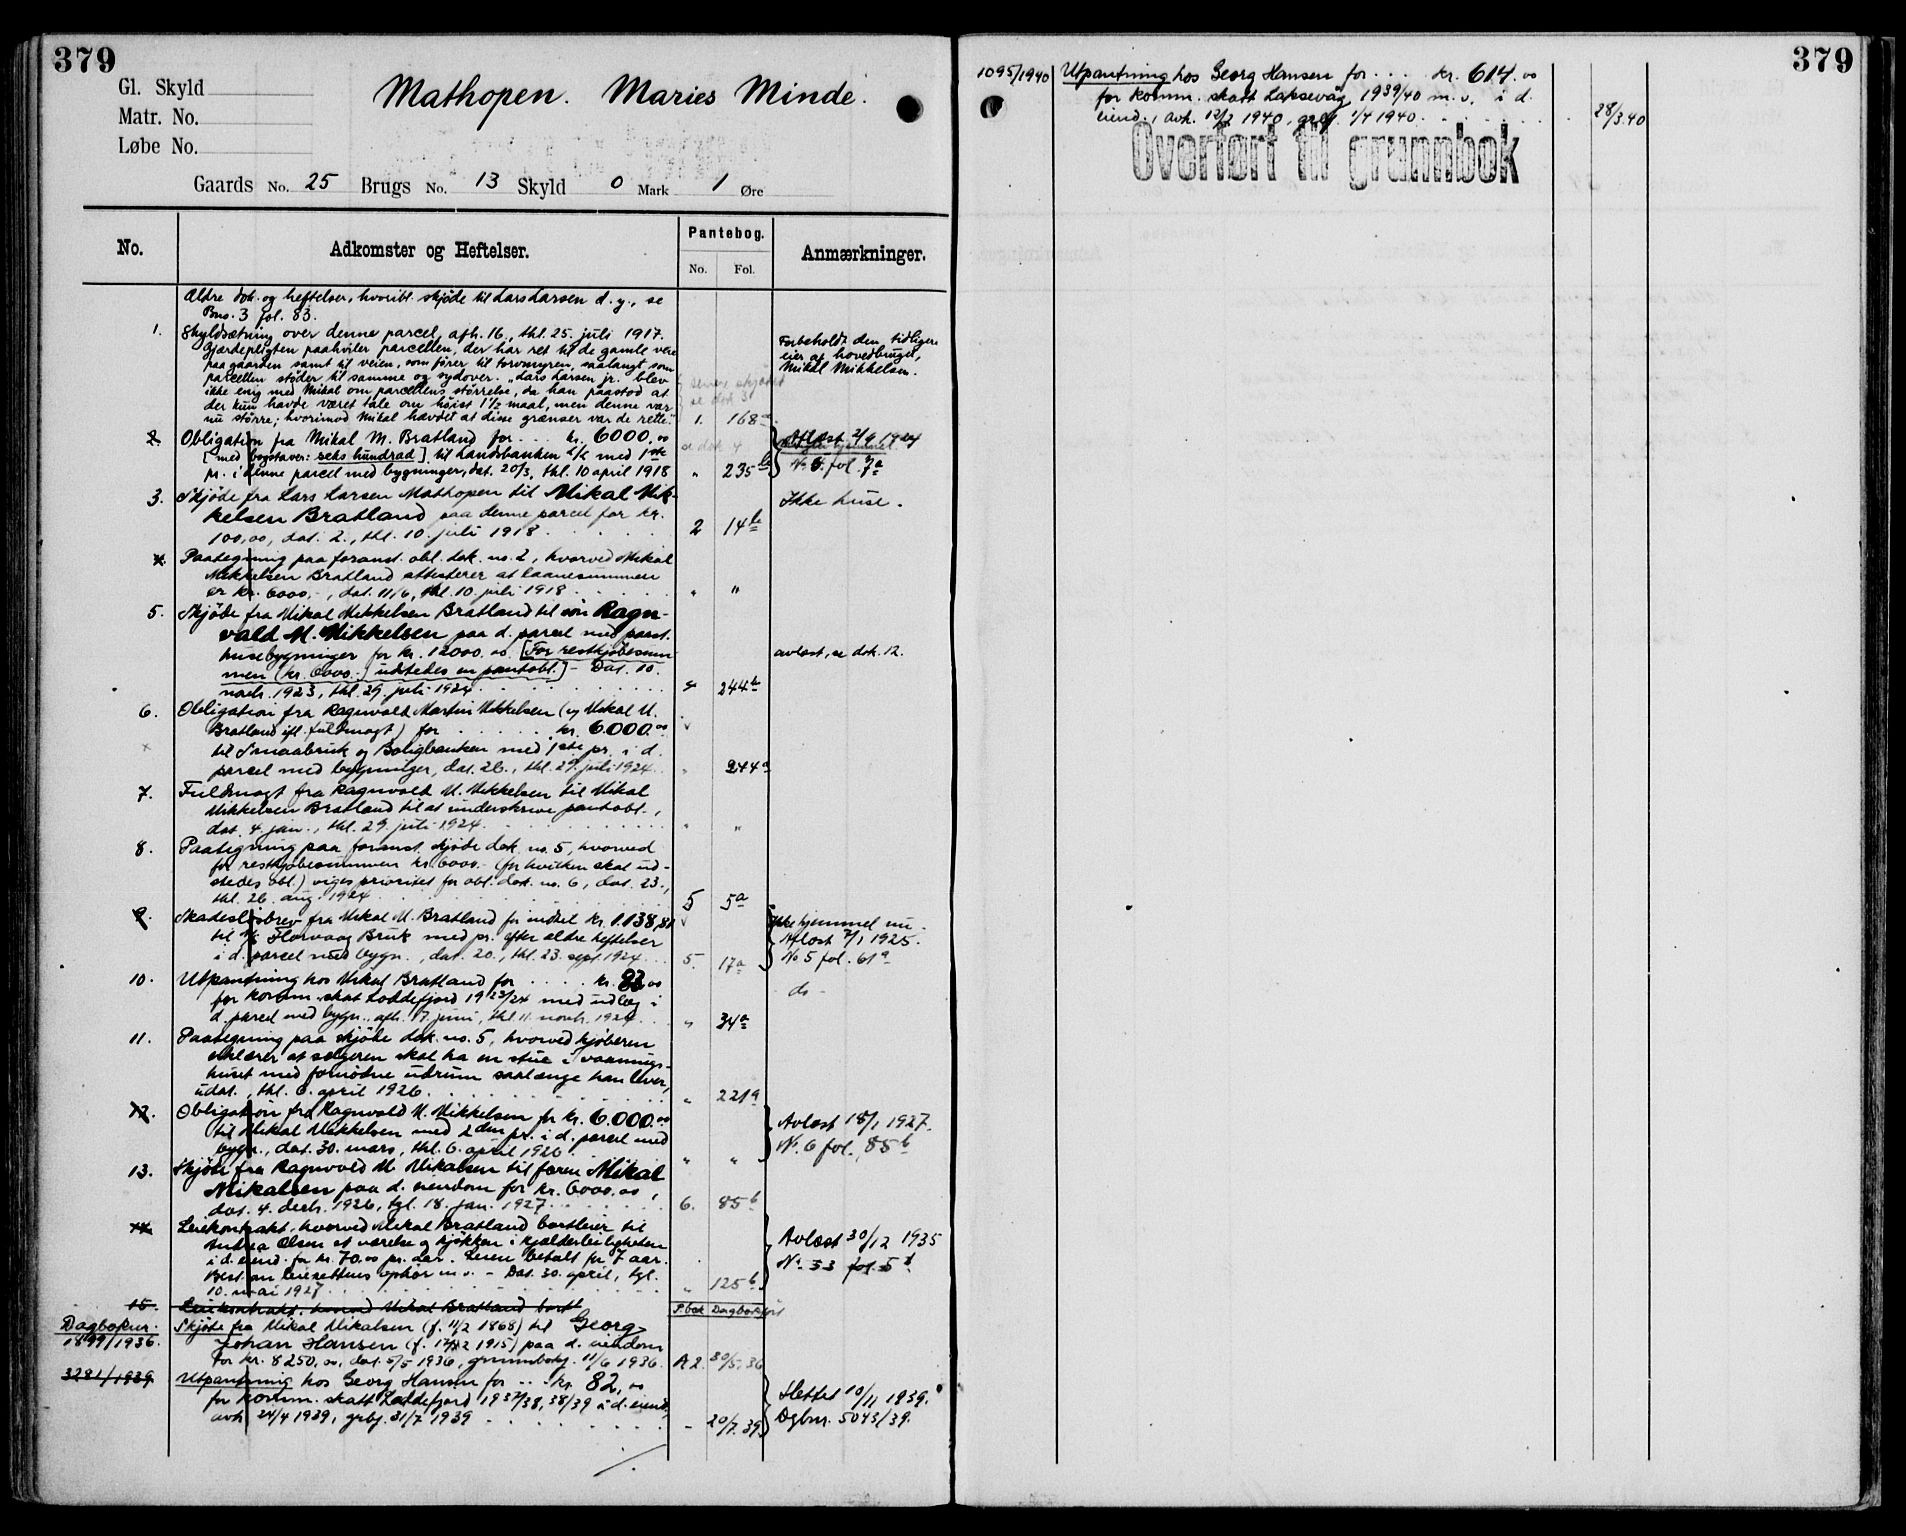 379
Gl. Skyld
Matr. No.
Løbe No.
Mathopen. Maries Minde.
Gaards No. 25 Brugs No. 13 Skyld 0 Mark 1 Øre
No.
Adkomster og Heftelser.
Pantebog.
No. Fol.
Anmærkninger.
Ældre dok. og heftelser, hvoribl. skjøde til Lars Larsen d. y., se
Bno. 3 fol. 83.
1. Skyldsætning over denne parcel, afh. 16., thl. 25. juli 1917.
Gjærdepligten paahviler parcellen, der har ret til de gamle veie
paa gaarden samt til veien, som fører til torvmyren, saalangt som
parcellen støder til samme og sydover. "Lars Larsen jr. blev
ikke enig med Mikal om parcellens størrelse, da han paastod at
der kun havde været tale om høist 1½ maal, men denne var
nu større; hvorimod Mikal hævdet at disse grænser var de rette." 1. 168a
Forbeholdt den tidligere
eier af hovedbruget,
Mikal Mikkelsen.
2. Obligation fra Mikal M. Bratland for . . . kr. 6000,00
[med bogstaver: seks hundrad] til Landsbanken A/S med 1ste
pr. i denne parcel med bygninger, dat. 20/3, thl. 10 april 1918 " 235b
Afløst 2/9 1924
No 5. fol. 7a
3. Skjøde fra Lars Larsen Mathopen til Mikal Mik-
kelsen Bratland paa denne parcel for kr.
100,00, dat. 2., thl. 10. juli 1918 2 14b
Ikke huse.
4. Paategning paa foranst. obl. dok. no. 2, hvorved Mikal
Mikkelsen Bratland attesterer at laanesummen
er kr. 6000,-, dat. 11/6, thl. 10. juli 1918 " "
5. Skjøde fra Mikal Mikkelsen Bratland til søn Ragn-
vald M. Mikkelsen paa d. parcel med paast.
husebygninger for kr. 12000.00 [For restkjøbesum
men (kr. 6000.-) udstedes en pantobl.] - Dat. 10.
novb. 1923, thl. 29. juli 1924 4 244b
avløst, se dok. 12.
6. Obligation fra Ragnvald Martin Mikkelsen (v/ Mikal M.
Bratland ifl. fuldmagt) for . . . kr. 6000.00
til Smaabruk og Boligbanken med 1ste pr. i d.
parcel med bygninger, dat. 26., thl. 29. juli 1924. " 244a
7. Fuldmagt fra Ragnvald M. Mikkelsen til Mikal
Mikkelsen Bratland til at underskrive pantobl.,
dat. 4. jan., thl. 29. juli 1924. " "
8. Paategning paa foranst. skjøde dok. no. 5, hvorved
for restkjøbesummen kr. 6000.- (for hvilken skal ud-
stedes obl.) viges prioritet for obl. dok. no. 6, dat. 23.,
thl. 26. aug. 1924 5 5a
9. Skadesløsbrev fra Mikal M. Bratland for indtil kr. 1.138,81
til A/S Florvaag Bruk med pr. efter ældre heftelser
i d. parcel med bygn., dat. 20., thl. 23. sept. 1924 5. 17a
Ikke hjemmel nu.
Afløst 7/1 1925.
No 5 fol. 61a
10. Utpantning hos Mikal Bratland for . . . . kr. 83.00
for komm. skat Loddefjord 1923/24 med udlæg i
d. parcel med bygn., afh. 17. juni, thl. 11. novb. 1924 " 34a
do -
11. Paategning paa skjøde dok. no. 5, hvorved kjøberen
erklærer at sælgeren skal ha en stue i vaanings-
huset med fornødne udrum saalænge han lever,
udat., thl. 6. april 1926. " 221a
12. Obligation fra Ragnvald M. Mikkelsen for kr. 6.000.00
til Mikal Mikkelsen med 2den pr. i d. parcel med
bygn., dat. 30. mars, thl. 6. april 1926 " "
Avløst 18/1 1927.
No. 6 fol. 85b
13. Skjøde fra Ragnvald M. Mikalsen til faren Mikal
Mikalsen paa d. eiendom for kr. 6000.00,
dat. 4. decb. 1926, tgl. 18. jan. 1927 6. 85b
14. Leiekontrakt, hvorved Mikal Bratland bortleier til
Andrea Olsen et værelse og kjøkken i kjælderleiligheten
i d. eiend. for kr. 70.00 pr. aar. Leien betalt for 7 aar.
Best. om leierettens ophør m.v. - Dat. 30. april, tgl.
10. mai 1927 " 125b
Avløst 30/12 1935
No 33 fol. 5
15. Leiekontrakt, hvorved Mikal Bratland bortl
P.bok Dagbokført
Dagboknr.
1899/1936. Skjøte fra Mikal Mikalsen (f. 11/2 1868) til Georg
Johan Hansen (f. 17/12 1915) paa d. eiendom
for kr. 8250,00, dat. 5/5 1936, grunnbokf. 11/6 1936. A 2. 30/5. 36
3281/1939. Utpantning hos Georg Hansen for . . . kr. 82,00
for komm. skatt Loddefjord 1937/38, 38/39 i d. eiend.,
avh. 24/4 1939, grbf. 31/7 1939 - 20/7. 39.
Slettet 10/11 1939.
Dgbnr. 5043/39.
379
1095/1940 Utpantning hos Georg Hansen for . . . . kr. 614.00
for komm. skatt Laksevåg 1939/40 m.v. i d.
eiend., avh. 12/3 1940, grbf. 1/4 1940. 28/3.40
Overført til grunnbok